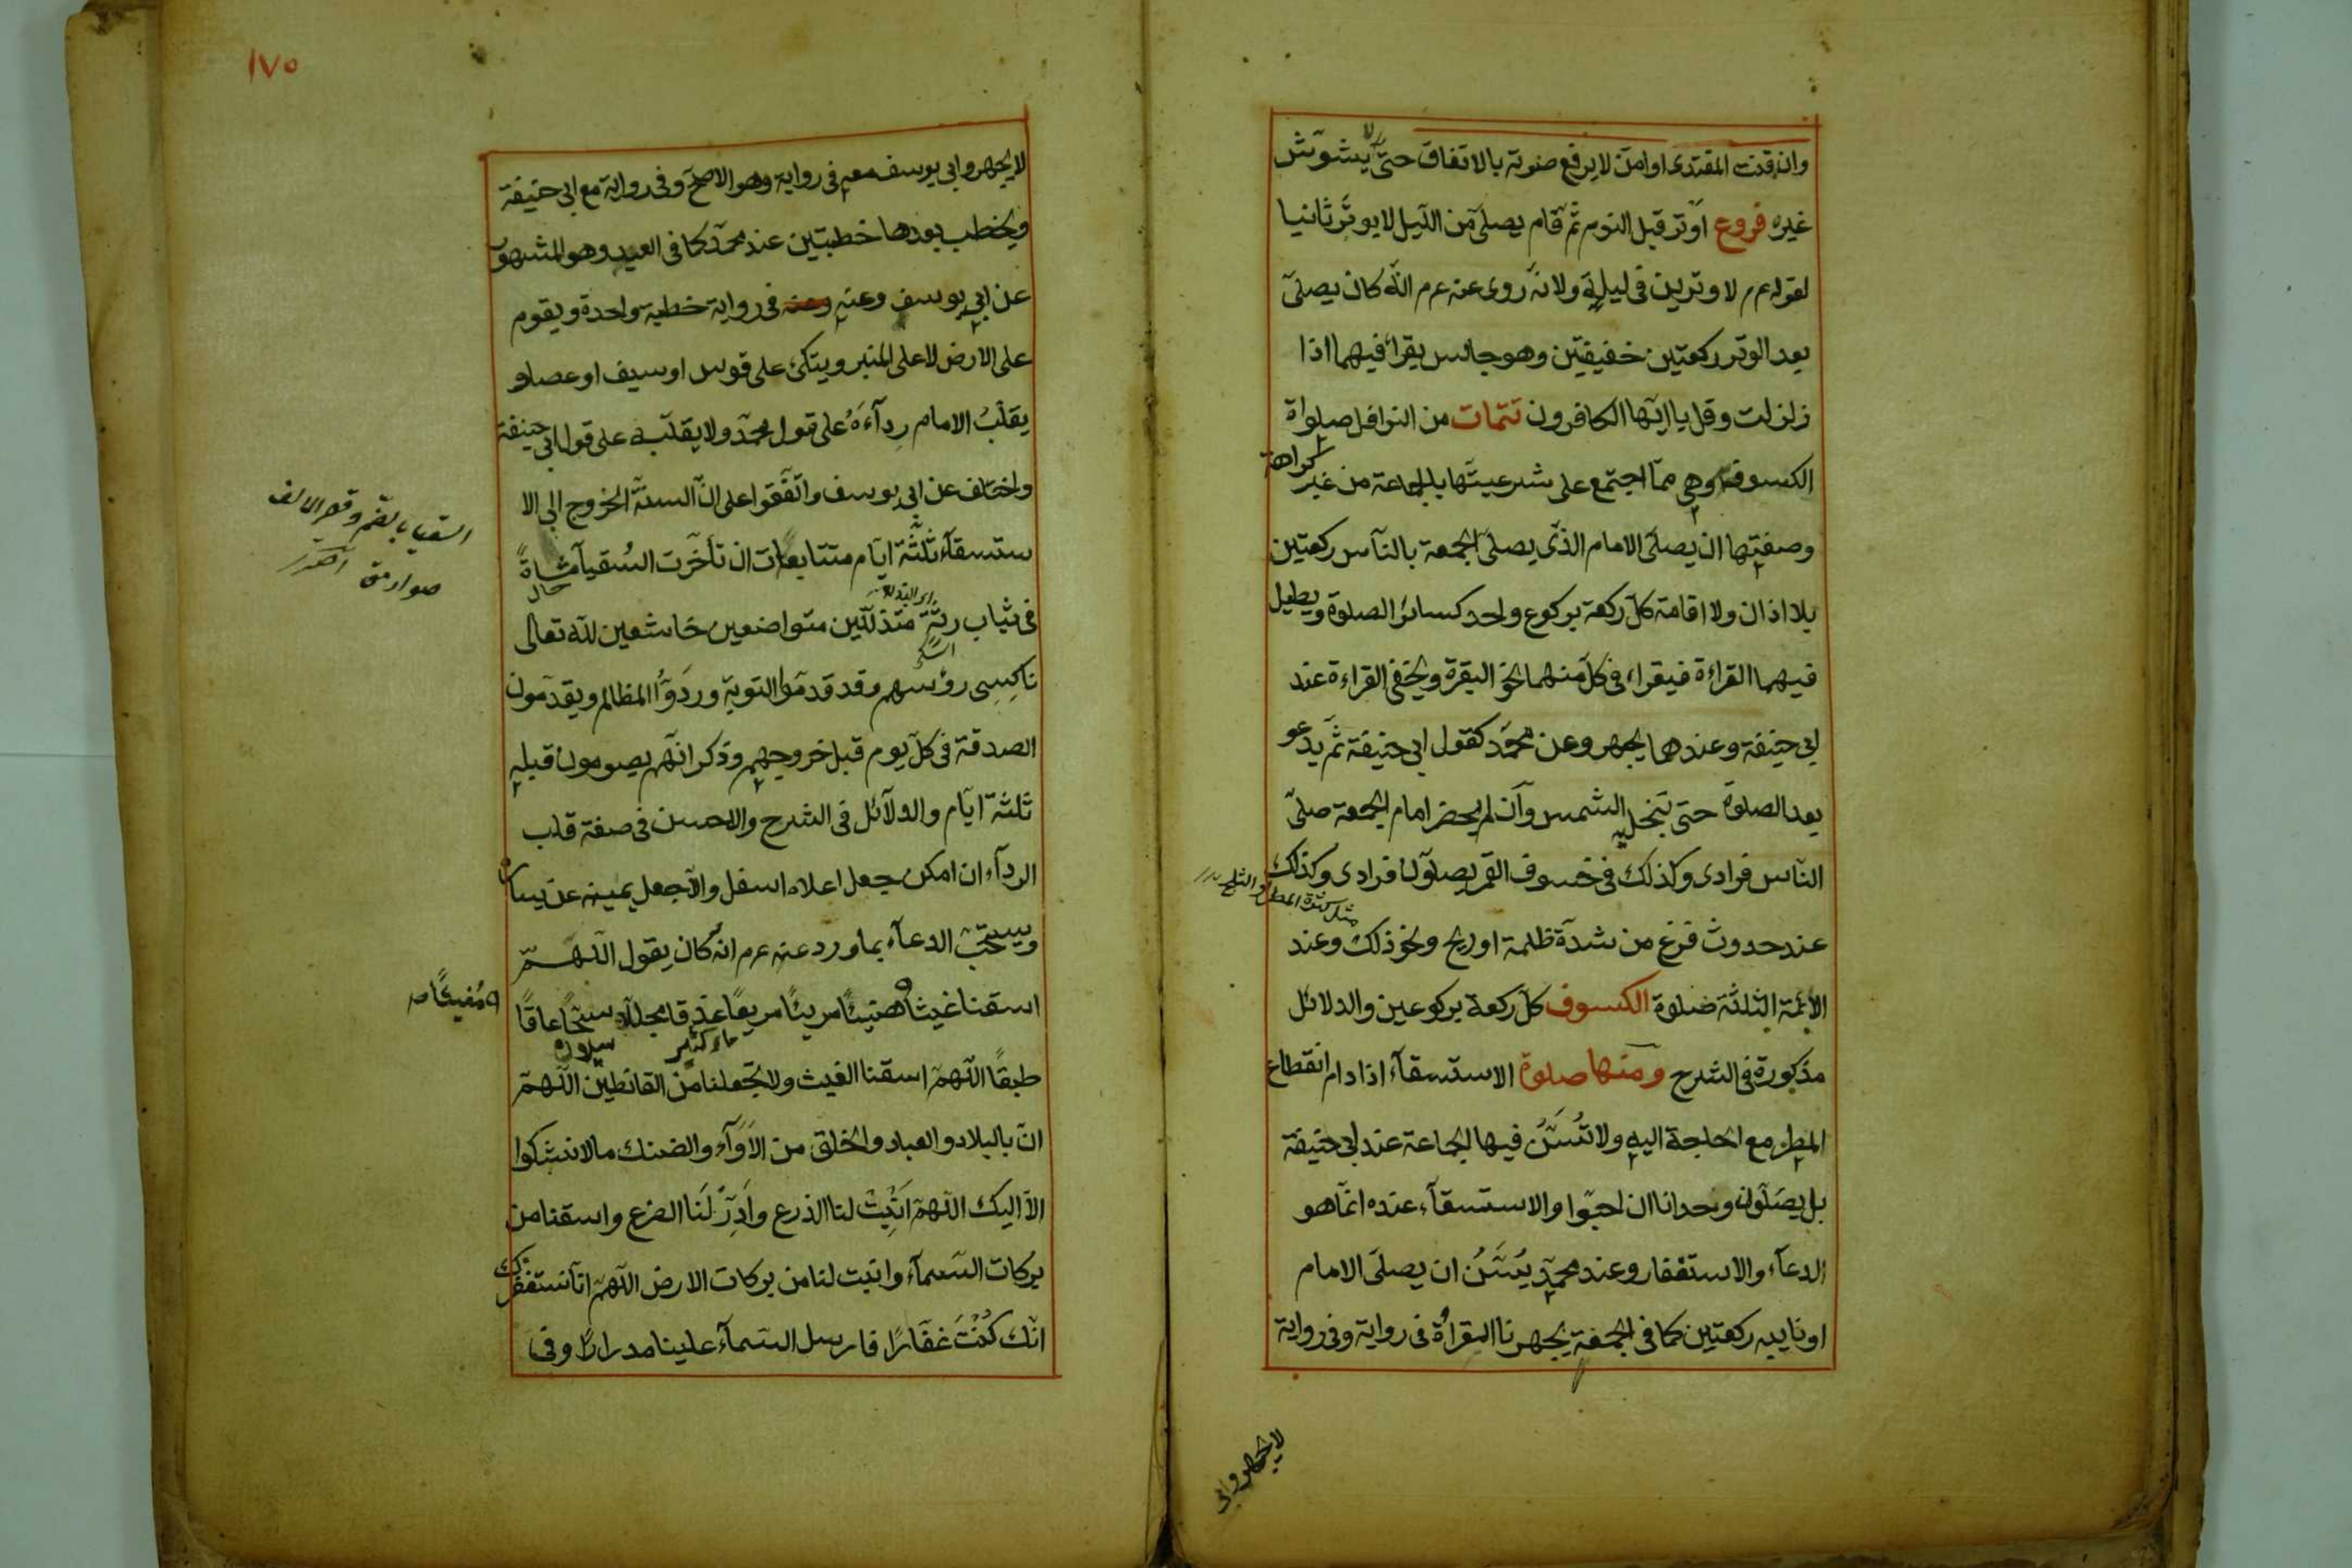 وان قنت المقتدى او امن لا يرفع صوته بالاتفاق حتى لا يشوش
غيره فروع اوتر قبل النوم ثم قام يصلى من الليل لا يوتر ثانيا
لقوله عم لا وترين فى ليلة ولانه روى عنه عم انه كان يصلى
بعد الوتر ركعتين خفيفتين وهو جالس يقرأ فيهما اذا
زلزلت وقل يا ايها الكافرون تتمات من النوافل صلواة
الكسوف وهى مما اجتمع على شرعيتها بالجماعة من غير كراهة
وصفتها ان يصلى الامام الذى يصلى الجمعة بالناس ركعتين
بلا اذان ولا اقامة كل ركعة بركوع واحد كسائر الصلوة ويطيل
فيهما القراءة فيقراء فى كل منهما نحو البقرة ويخفى القراءة عند
ابى حنيفة وعندهما يجهر وعن محمد كقول ابى حنيفة ثم يدعو
بعد الصلوة حتى تنجلى الشمس وان لم يحضر امام الجمعة صلى
الناس فرادى وكذلك فى خسوف القمر يصلون فرادى وكذلك
مثل كثرة المطر والثلج
عند حدوث فزع من شدة ظلمة او ريح ونحو ذلك وعند
الأئمة الثلثة صلوة الكسوف كل ركعة بركوعين والدلائل
مذكورة فى الشرح ومنها صلوة الاستسقآء اذا دام انقطاع
المطر مع الحاجة اليه ولا تسن فيها الجماعة عند ابى حنيفة
بل يصلون وحدانا ان احبوا والاستسقآء عنده انما هو
الدعآء والاستغفار وعند محمد يسن ان يصلى الامام
او نايبه ركعتين كما فى الجمعة يجهر نا القرأة فى رواية وفى رواية
لا يجهر وابى
١٧٥
لا يجهر وابى يوسف معه فى رواية وهو الاصح وفى رواية مع ابى حنيفة
ويخطب بعدها خطبتين عند محمد كما فى العيد وهو المشهور
عن ابى يوسف وعنه فى رواية خطبة واحدة ويقوم
على الارض لا على المنبر ويتكئ على قوس او سيف او عصا و
يقلب الامام رداءه على قول محمد ولا يقلبه على قول ابى حنيفة
واختلف عن ابى يوسف واتفقوا على ان السنة الخروج الى الا
ستسقآء ثلثة ايام متتابعات ان تأخرت السقيا مشاة
السقيا بالضم وقصر الالف
فى ثياب رثة متذللين متواضعين خاشعين لله تعالى
ناكسى رؤسهم وقد قدموا التوبة وردوا المظالم ويقدمون
الصدقة فى كل يوم قبل خروجهم وذكر انهم يصومون قبله
ثلثة ايام والدلآئل فى الشرح والاحسن فى صفة قلب
الردآء ان امكن جعل اعلاه اسفل والا جعل يمينه عن يساره
ويستحب الدعآء بما ورد عنه عم انه كان يقول اللهم
اسقنا غيثا هنيئا مريئا مريعا غدقا مجللا سحا عاما
مغيثا صح
ماء كثير
طبقا اللهم اسقنا الغيث ولا تجعلنا من القانطين اللهم
ان بالبلاد والعباد والخلق من الاوآء والضنك ما لا نشكوا
الا اليك اللهم انبت لنا الذرع وادر لنا الضرع واسقنا من
بركات السمآء وانبت لنا من بركات الارض اللهم انا نستغفرك
انك كنت غفارا فارسل السمآء علينا مدرارا وفى